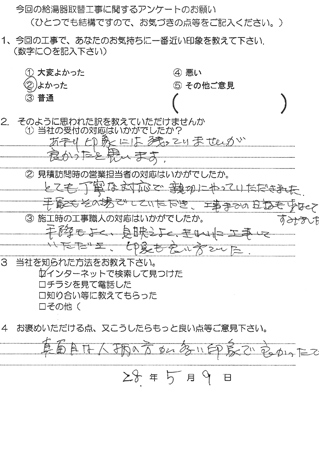 今回の給湯器取替工事に関するアンケートのお願い
(ひとつでも結構ですので、お気づきの点等をご記入ください。)
1、今回の工事で、あなたのお気持ちに一番近い印象を教えて下さい。
(数字に○を記入下さい)
① 大変よかった ④ 悪い
② よかった ⑤ その他ご意見
③ 普通 ( )
2. そのように思われた訳を教えていただけませんか
① 当社の受付の対応はいかがでしたか?
あまり印象には残っていませんが
良かったと思います.
② 見積訪問時の営業担当者の対応はいかがでしたか。
とても丁寧な対応で親切にやっていただきました.
手配もその場でしていただき、工事までの日数も
③ 施工時の工事職人の対応はいかがでしたか。
手際もよく、見映えよく、きれいに工事して
いただき、印象も良い方でした.
3 当社を知られた方法をお教え下さい。
☑インターネットで検索して見つけた
□チラシを見て電話した
□知り合い等に教えてもらった
□その他(
4 お褒めいただける点、又こうしたらもっと良い点等ご意見下さい。
真面目な人柄の方が多い印象で良かったで
28. 年 5 月 9 日